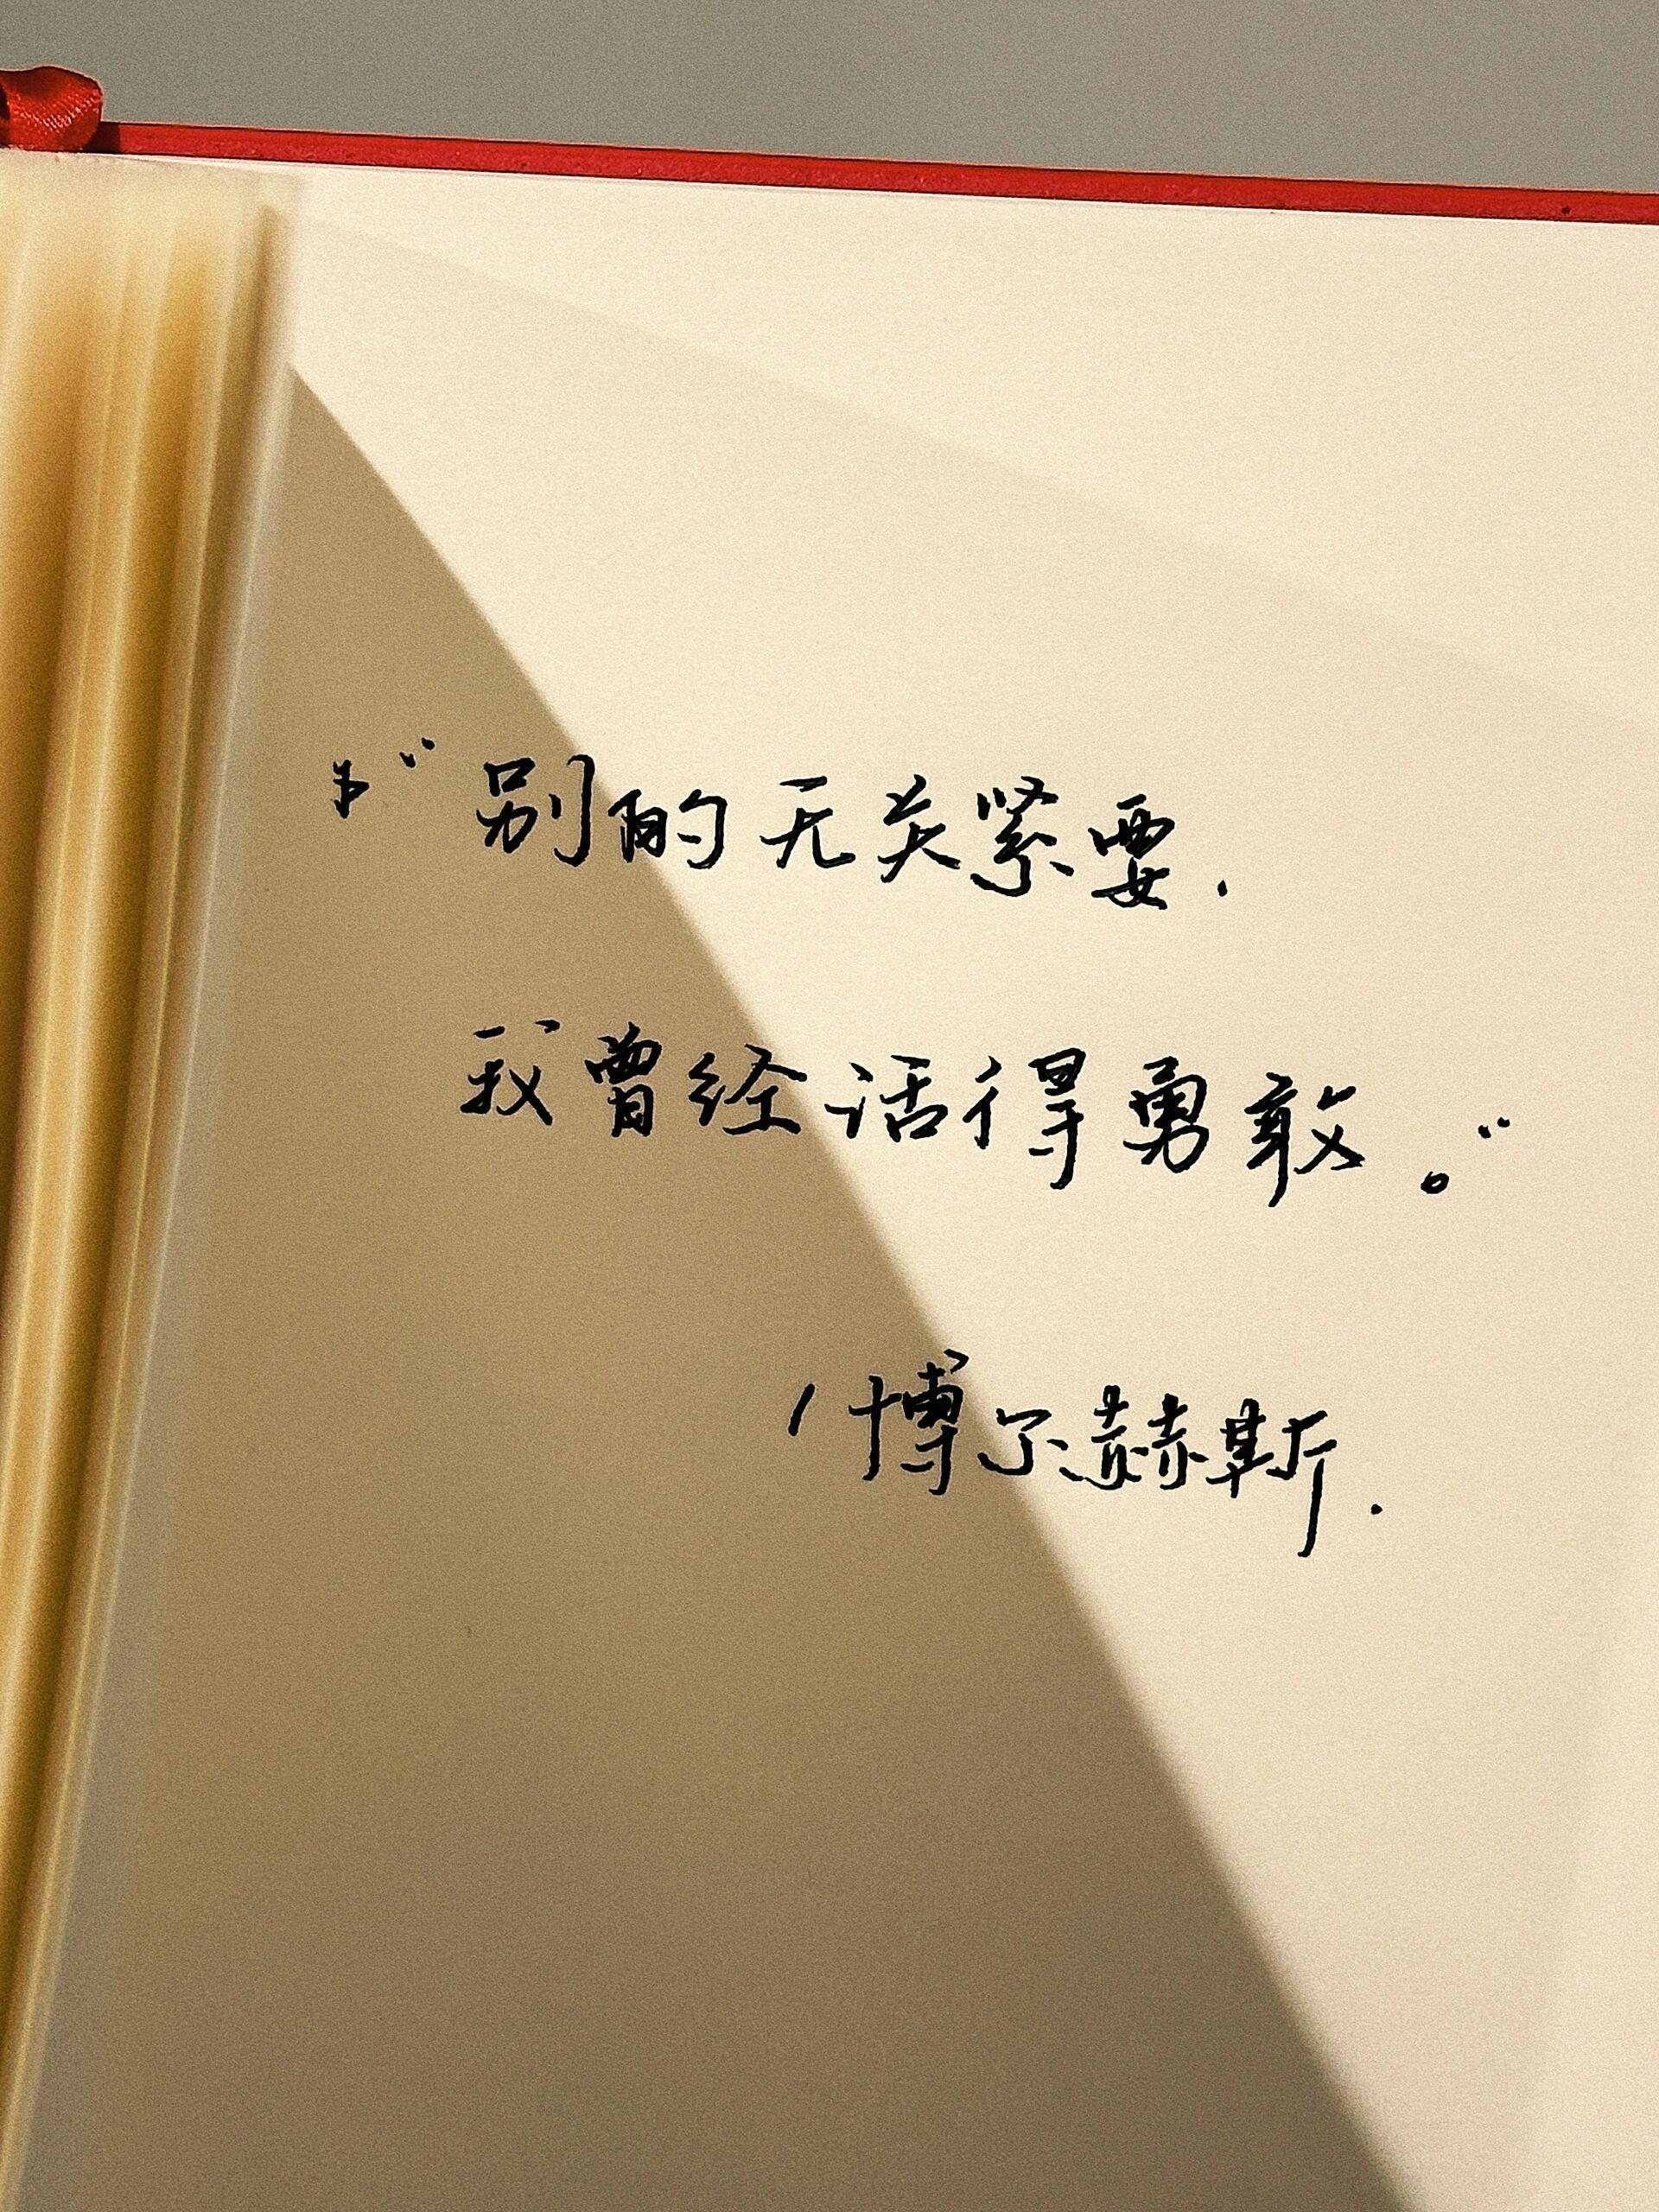 “别的无关紧要.
我曾经活得勇敢。”
/博尔赫斯.